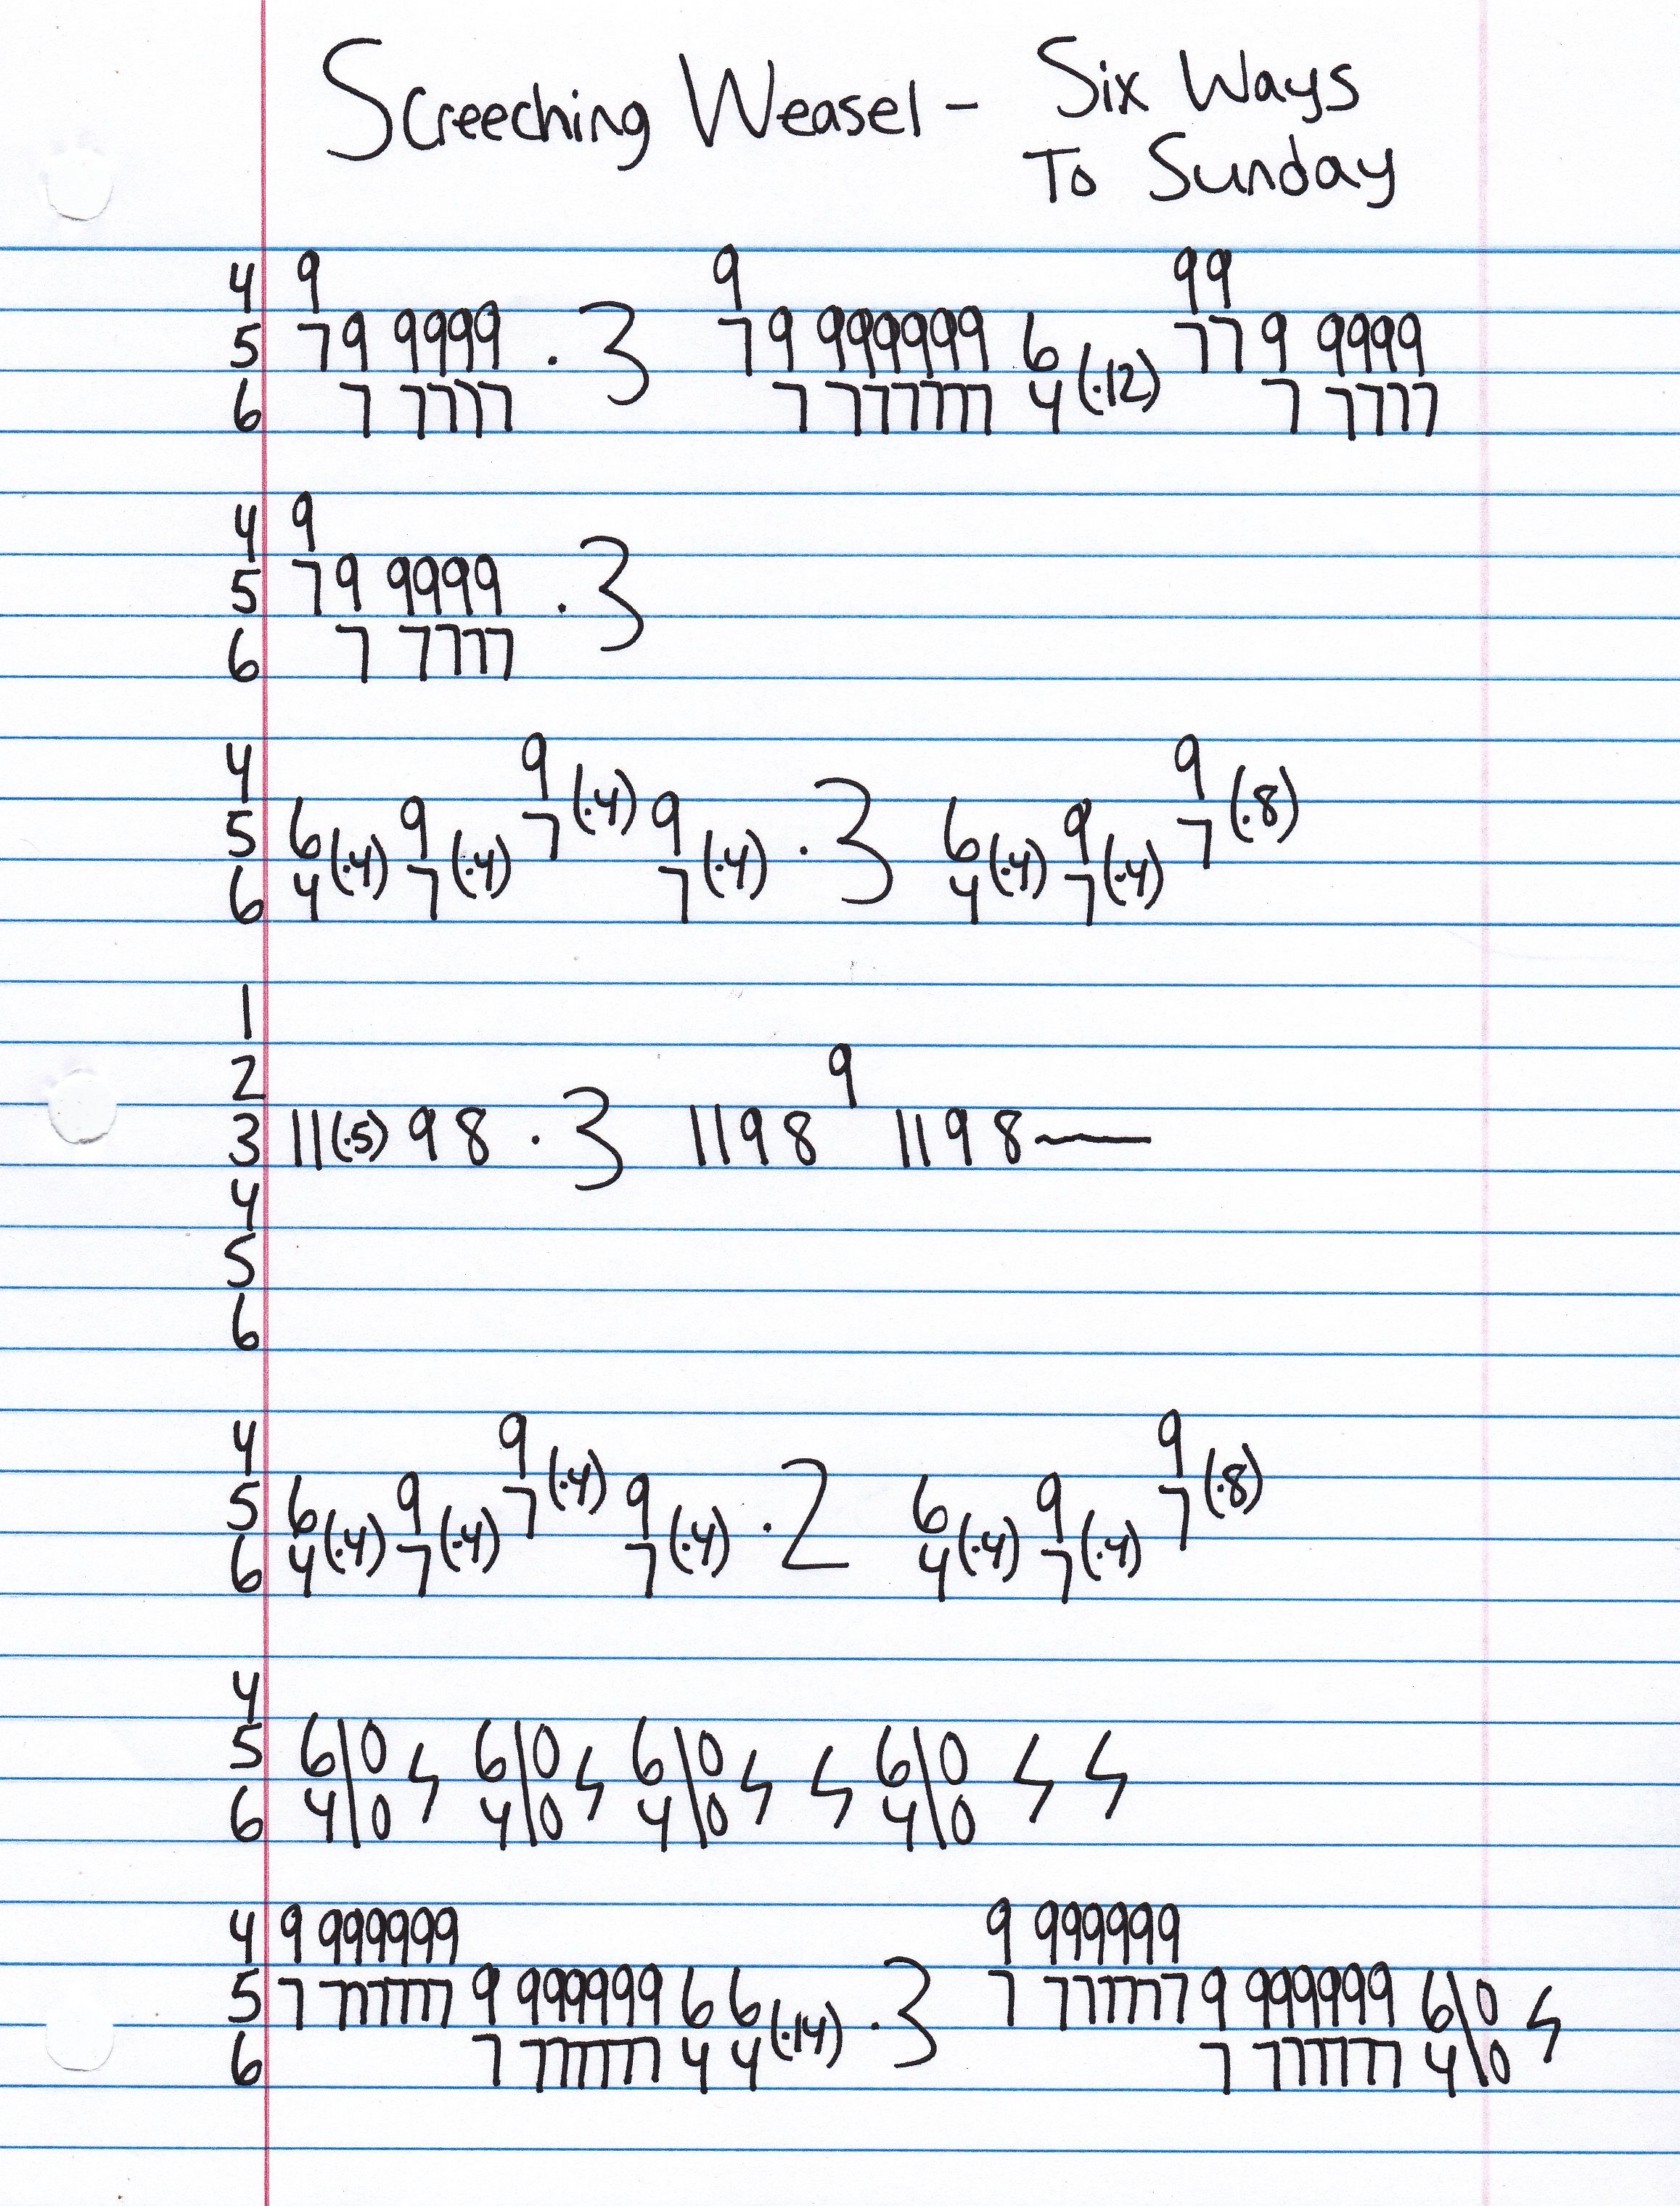 Screeching Weasel - Six Ways
To Sunday
4 9 9 99
5 79 9999 · 3 79 999999 6 (·12) 779 9999
6 7 7777 7 777777 4 7 7777
4 9
5 79 9999 · 3
6 7 7777
4 9 (·4) 9 (·8)
5 6 (·4) 9 (·4) 7 9 (·4) · 3 6 (·4) 9 (·4) 7
6 4 7 7 4 7
1
2 9
3 11(·5) 9 8 · 3 11 9 8 11 9 8
4
5
6
4 9 (·4) 9 (·8)
5 6 (·4) 9 (·4) 7 9 (·4) · 2 6 (·4) 9 (·4) 7
6 4 7 7 4 7
4
5 6\0 6\0 6\0 6\0
6 4\0 4\0 4\0 4\0
4 9 999999 9 999999
5 7 777777 9 999999 66 (·14) · 3 7 777777 9 999999 6\0
6 7 777777 44 7 777777 4\0